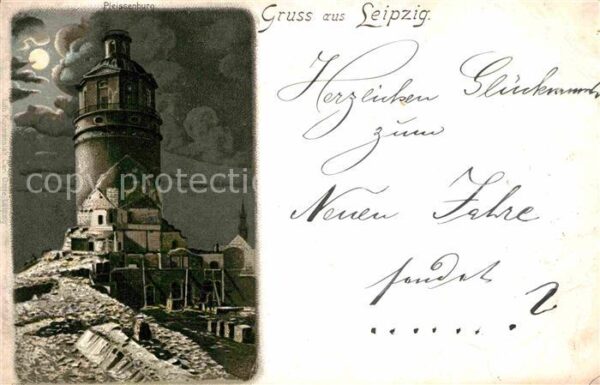 Pleissenburg
Gruss aus Leipzig.
Herzlichen Glückwunsch
zum
Neuen Jahre
sendet
copy protected